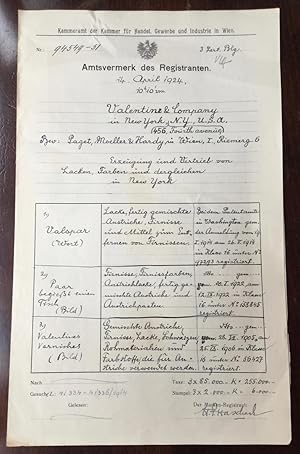 Kammeramt der Kammer für Handel, Gewerbe und Industrie in Wien.
Nr. 94549-51
3 Bzrt. Blg.
Amtsvermerk des Registranten.
4. April 1924,
10h 40m
Valentine & Company
in New York, N.Y., U.S.A.
(456, Fourth avenue)
Paget, Moeller & Hardy, in Wien, I., Riemerg. 6
Erzeugung und Vertrieb von
Lacken, Farben und dergleichen
in New York
1)
Valspar
(Wort)
Lacke, fertig gemischte
Anstriche, Firnisse
und Mittel zum Ent-
fernen von Firnissen.
Bei dem Patentamte
in Washington gem.
der Anmeldung vom
in Klasse
16 unter No
97293 registriert.
2)
Paar
begießt einen
Tisch
(Bild)
Firnisse, Firnisfarben,
Anstrichlacke, fertig ge-
mischte Anstriche und
Anstrichpasten.
gem.
10. I. 1922, am
in Klasse
16 unter No 158845
registriert.
3)
Valentines
Varnishes
(Bild)
Gemischte Anstriche,
Firnisse, Lacke,
Rohmaterialien und
Farbstoffe, die für An-
striche verwendet werden.
gem.
1905,
1906 in Klasse
16 unter No 56427
registriert.
Nach
Gesuchsz.
Gelesen:
Taxe: 3 x 85.000.- K = 255.000.-
Stempel: 3 x 2.000.- K = 6.000.-
Der Marken-Registrant: